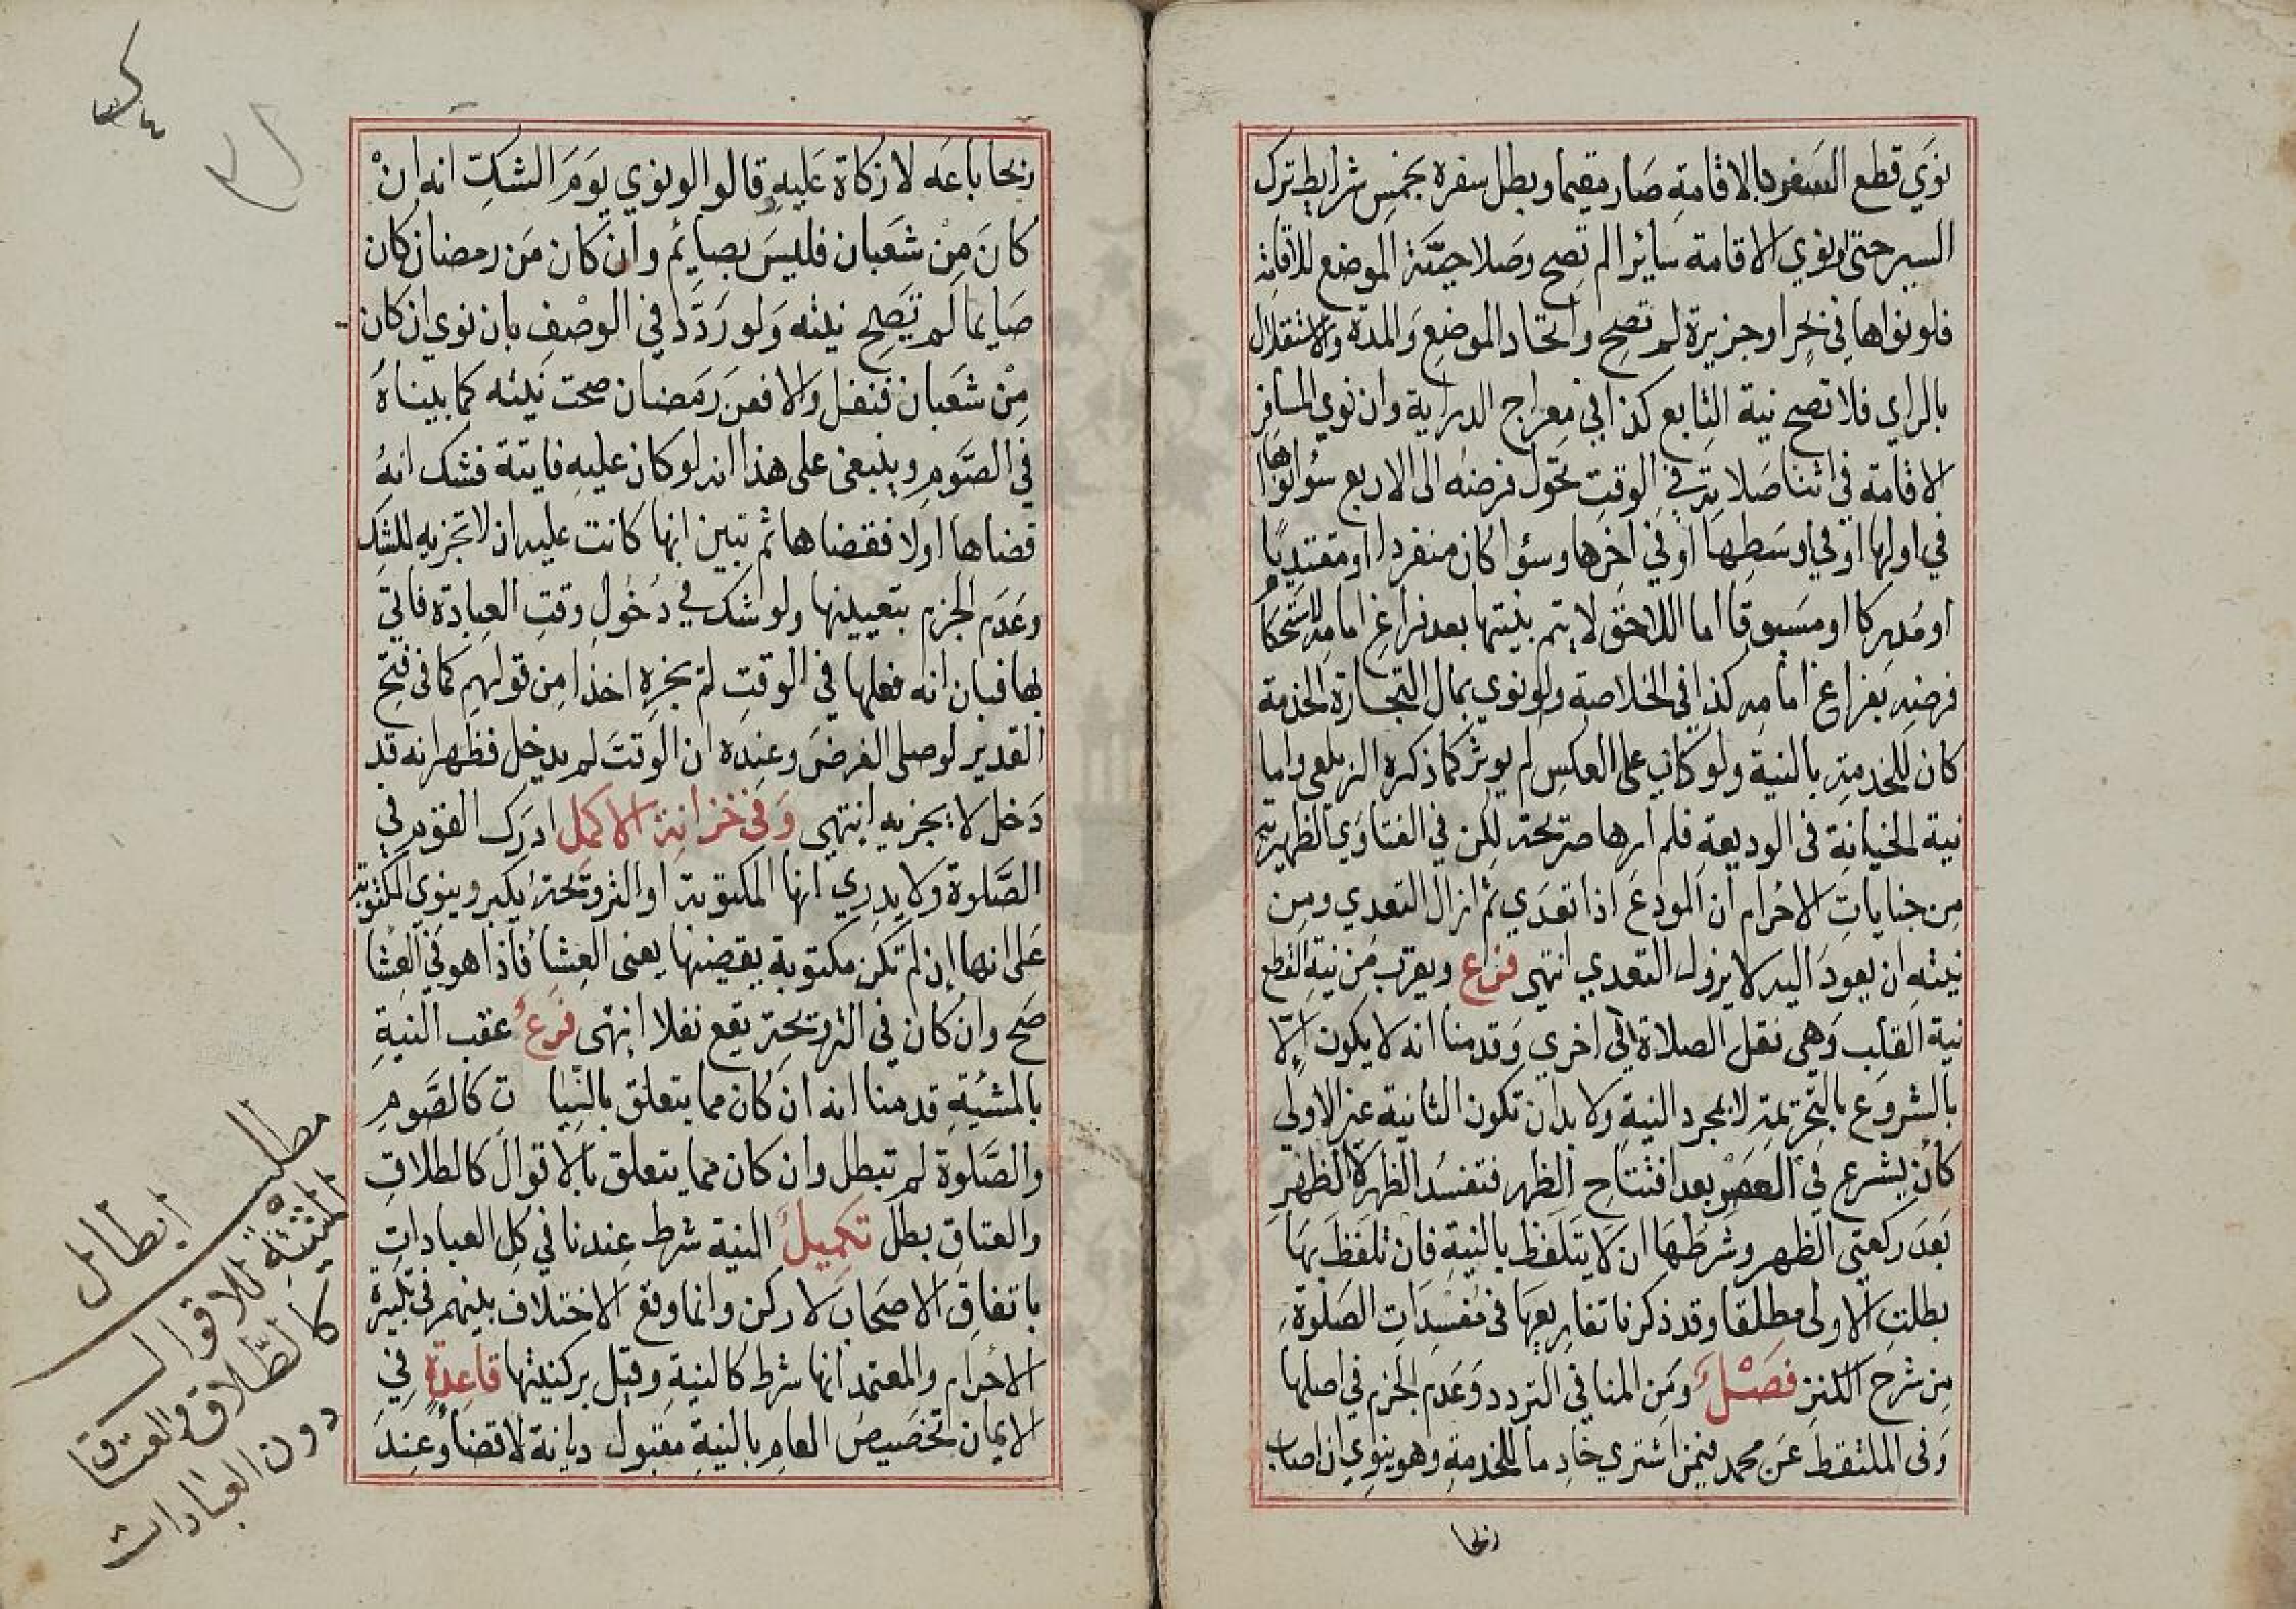 نوي قطع السفر بالاقامة صار مقيما وبطل سفره بخمس شرايط ترك
السير حتى لو نوي الاقامة سايرا لم تصح وصلاحية الموضع للاقامة
فلو نواها في بحر او جزيرة لم تصح واتحاد الموضع والمدة والاستقلال
بالراي فلا تصح نية التابع كذا في معراج الدراية وان نوي المسافر
الاقامة في اثنا صلاته في الوقت تحول فرضه الى الاربع سؤا نواها
في اولها او في وسطها او في اخرها وسؤا كان منفردا او مقتديا
او مدركا او مسبوقا اما اللاحق لا يتم بنيتها بعد فراغ امامه لاستحكام
فرضه بفراغ امامه كذا في الخلاصة ولو نوي بمال التجارة الخدمة
كان للخدمة بالنية ولو كان على العكس لم يوثر كما ذكره الزيلعي واما
نية الخيانة في الوديعة فلم ارها صريحة لكن في الفتاوي الظهيرية
من جنايات الاحرام ان المودع اذا تعدي ثم ازال التعدي ومن
نيته ان يعود اليه لا يزول التعدي انتهى فرع ويقرب من نية القطع
نية القلب وهي نقل الصلاة الى اخري وقدمنا انه لا يكون الا
بالشروع بالتحريمة لا بمجرد النية ولا بد ان تكون الثانية غير الاولي
كان يشرع في العصر بعد افتتاح الظهر فتفسد الظهر لا الظهر
بعد ركعتي الظهر وشرطها ان لا يتلفظ بالنية فان تلفظ بها
بطلت الاولى مطلقا وقد ذكرنا تفاريعها في مفسدات الصلوة
من شرح الكنز فصل ومن المنافي التردد وعدم الجزم في اصلها
وفى الملتقط عن محمد فيمن اشتري خادما للخدمة وهو ينوي ان اصاب
ربحا
ربحا باعه لا زكاة عليه قالوا لو نوي يوم الشك انه ان
كان من شعبان فليس بصايم وان كان من رمضان كان
صايما لم تصح نيته ولو ردد في الوصف بان نوي ان كان
من شعبان فنفل والا فمن رمضان صحت نيته كما بيناه
في الصوم وينبغى على هذا انه لو كان عليه فايتة فشك انه
قضاها اولا فقضاها ثم تبين انها كانت عليه ان لا تجزيه للشك
وعدم الجزم بتعيينها ولو شك في دخول وقت العبادة فاتي
بها فبان انه فعلها في الوقت لم يجزه اخذا من قولهم كما فى فتح
القدير لو صلى الفرض وعنده ان الوقت لم يدخل فظهر انه قد
دخل لا يجزيه انتهى وفى خزانة الاكمل ادرك القوم في
الصلوة ولا يدري انها المكتوبة او الترويحة يكبر وينوي المكتوبة
على انها ان لم تكن مكتوبة يقضيها يعنى العشا فاذا هو في العشا
صح وان كان في الترويحة يقع نفلا انتهى فرع عقب النية
بالمشية قدمنا انه ان كان مما يتعلق بالنيات كالصوم
والصلوة لم تبطل وان كان مما يتعلق بالاقوال كالطلاق
والعتاق بطل تكميل النية شرط عندنا في كل العبادات
باتفاق الاصحاب لا ركن وانما وقع الاختلاف بينهم في تكبيرة
الاحرام والمعتمد انها شرط كالنية وقيل بركنيتها قاعدة في
الايمان تخصيص العام بالنية مقبول ديانة لا قضا وعند
مطلب ابطال
المشية للاقوال
كالطلاق والعتاق
دون العبادات